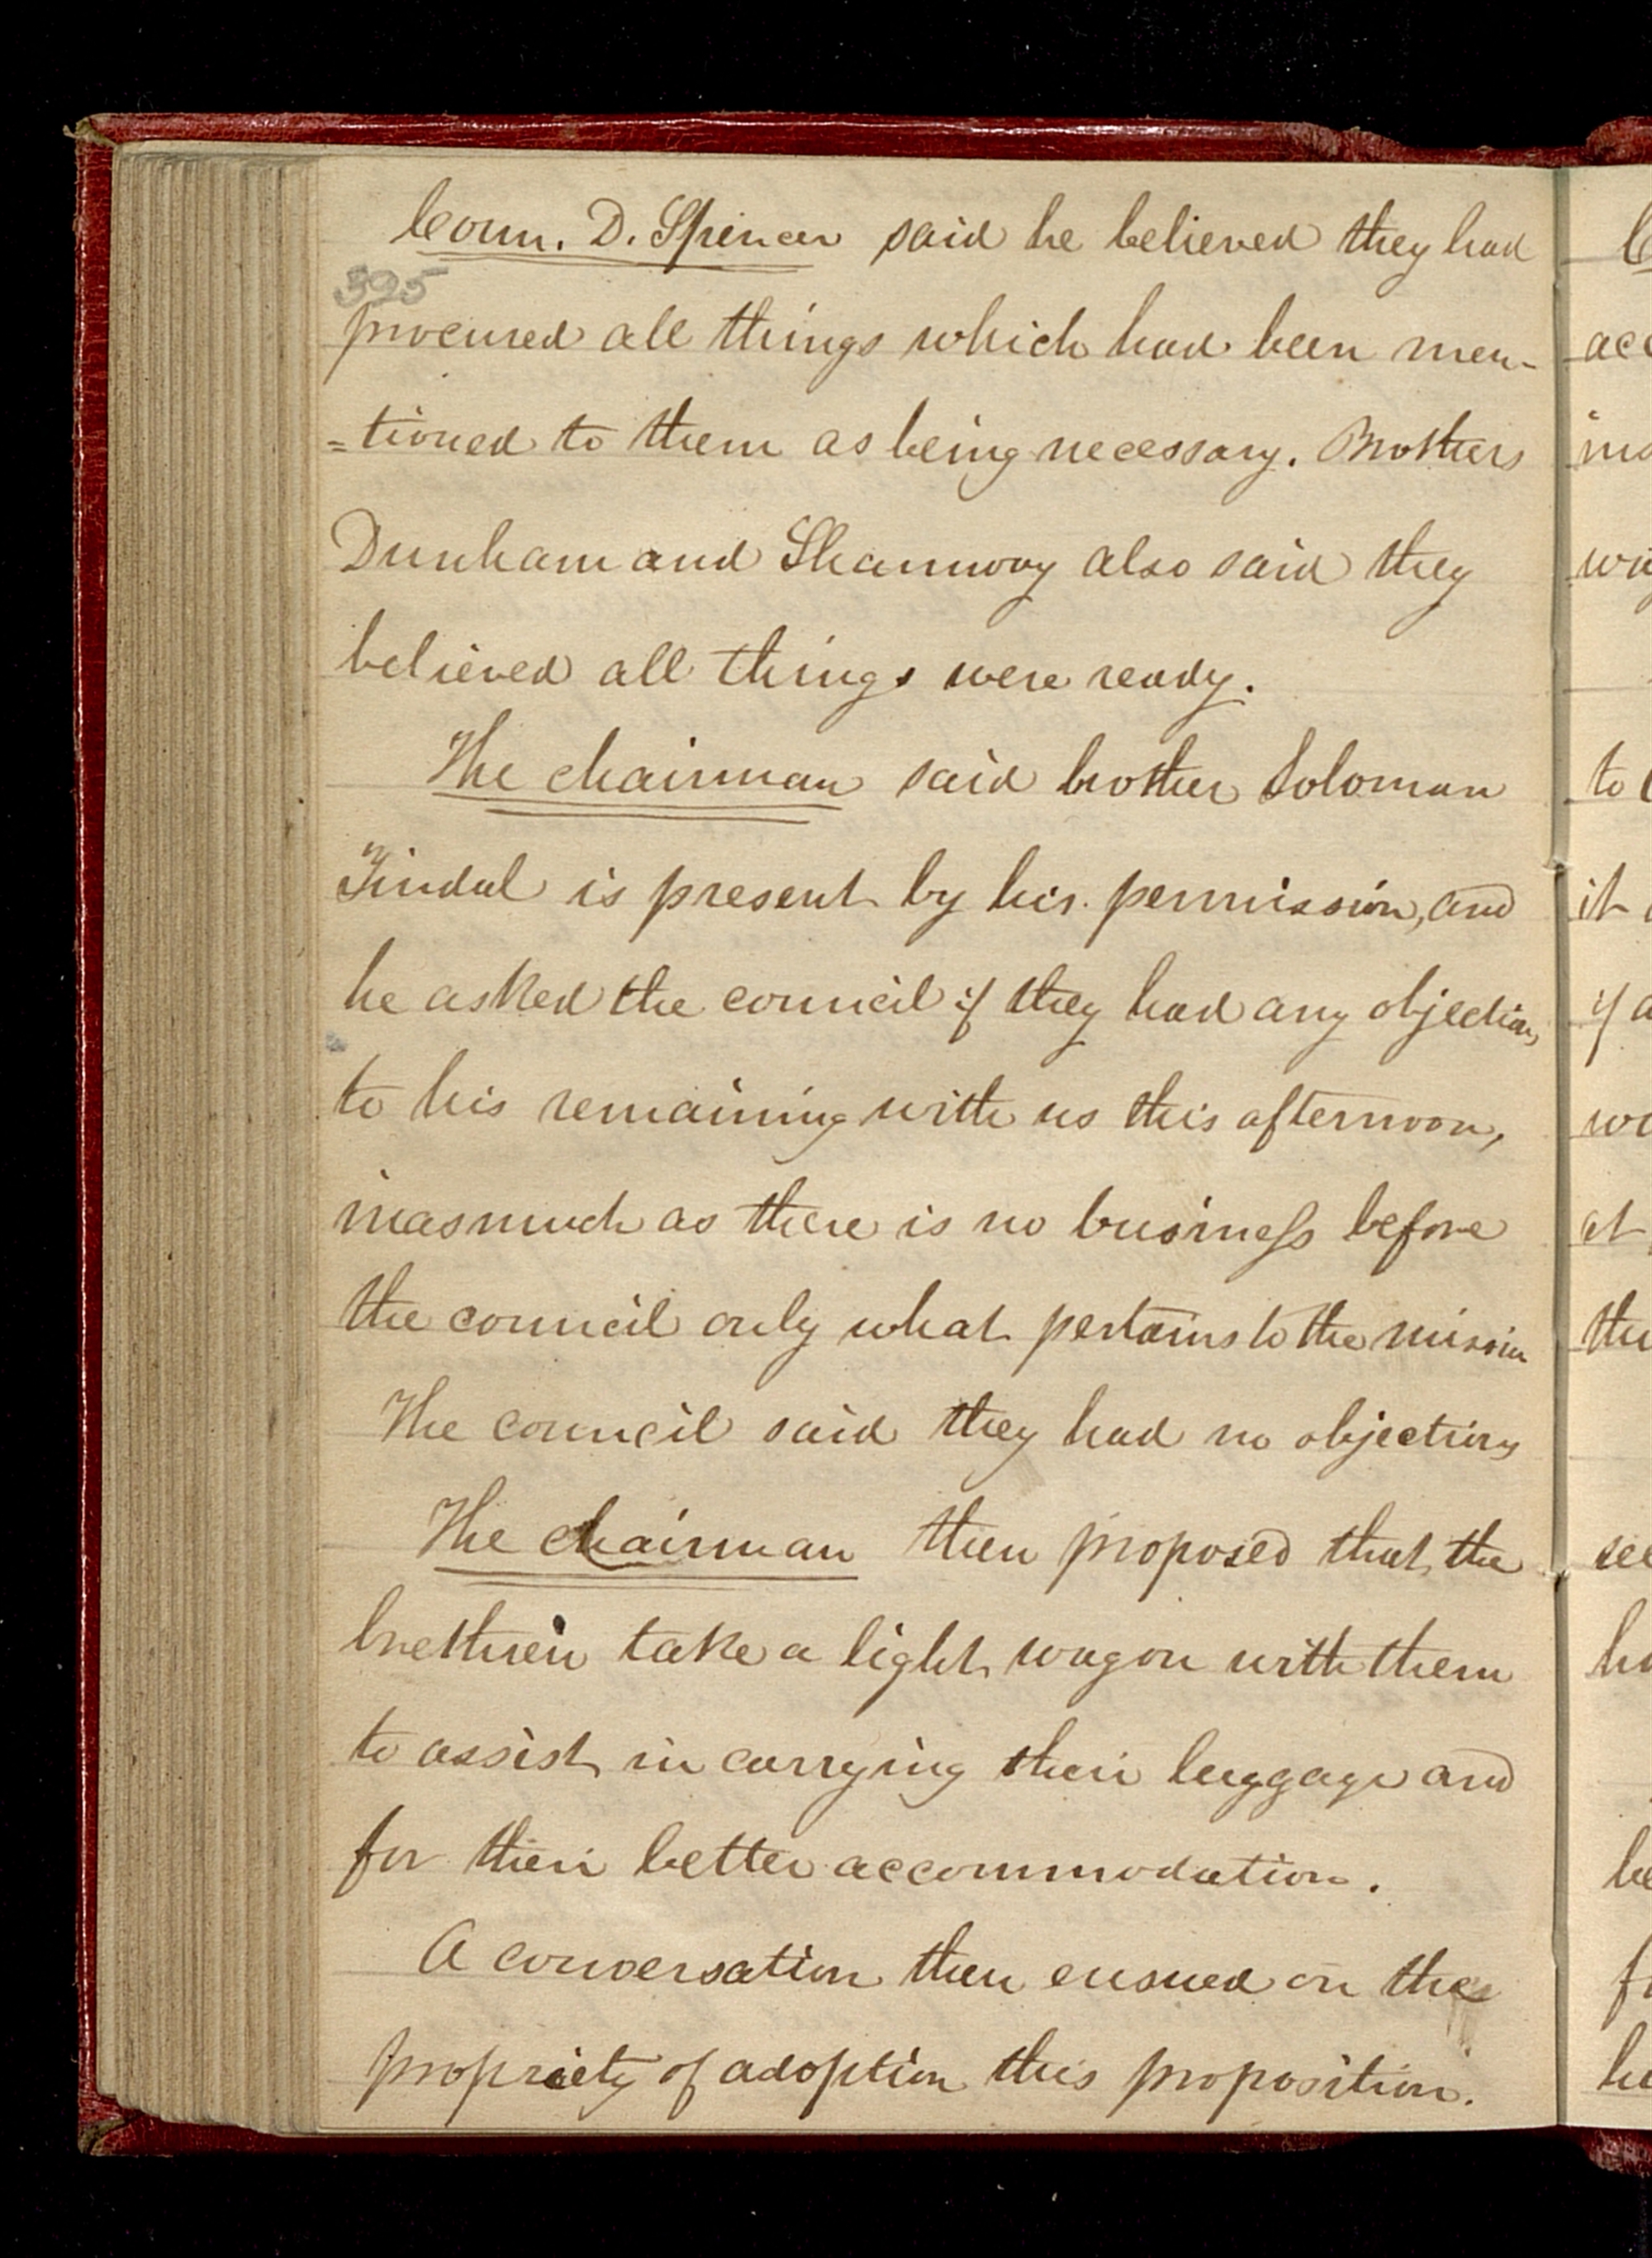 Coun. D. Spencer said he believed they had
395
procured all things which had been men-
=tioned to them as being necessary. Brothers
Dunham and Shumway also said they
believed all things were ready.
The chairman said brother Soloman
Tindal is present by his permission, and
he asked the council if they had any objections
to his remaining with us this afternoon,
inasmuch as there is no business before
the council only what pertains to the mission
The council said they had no objections
The chairman then proposed that the
brethren take a light wagon with them
to assist in carrying their luggage and
for their better accommodation.
A conversation then ensued on the
propriety of adoption this proposition.
acc
to
it
if a
at
the
see